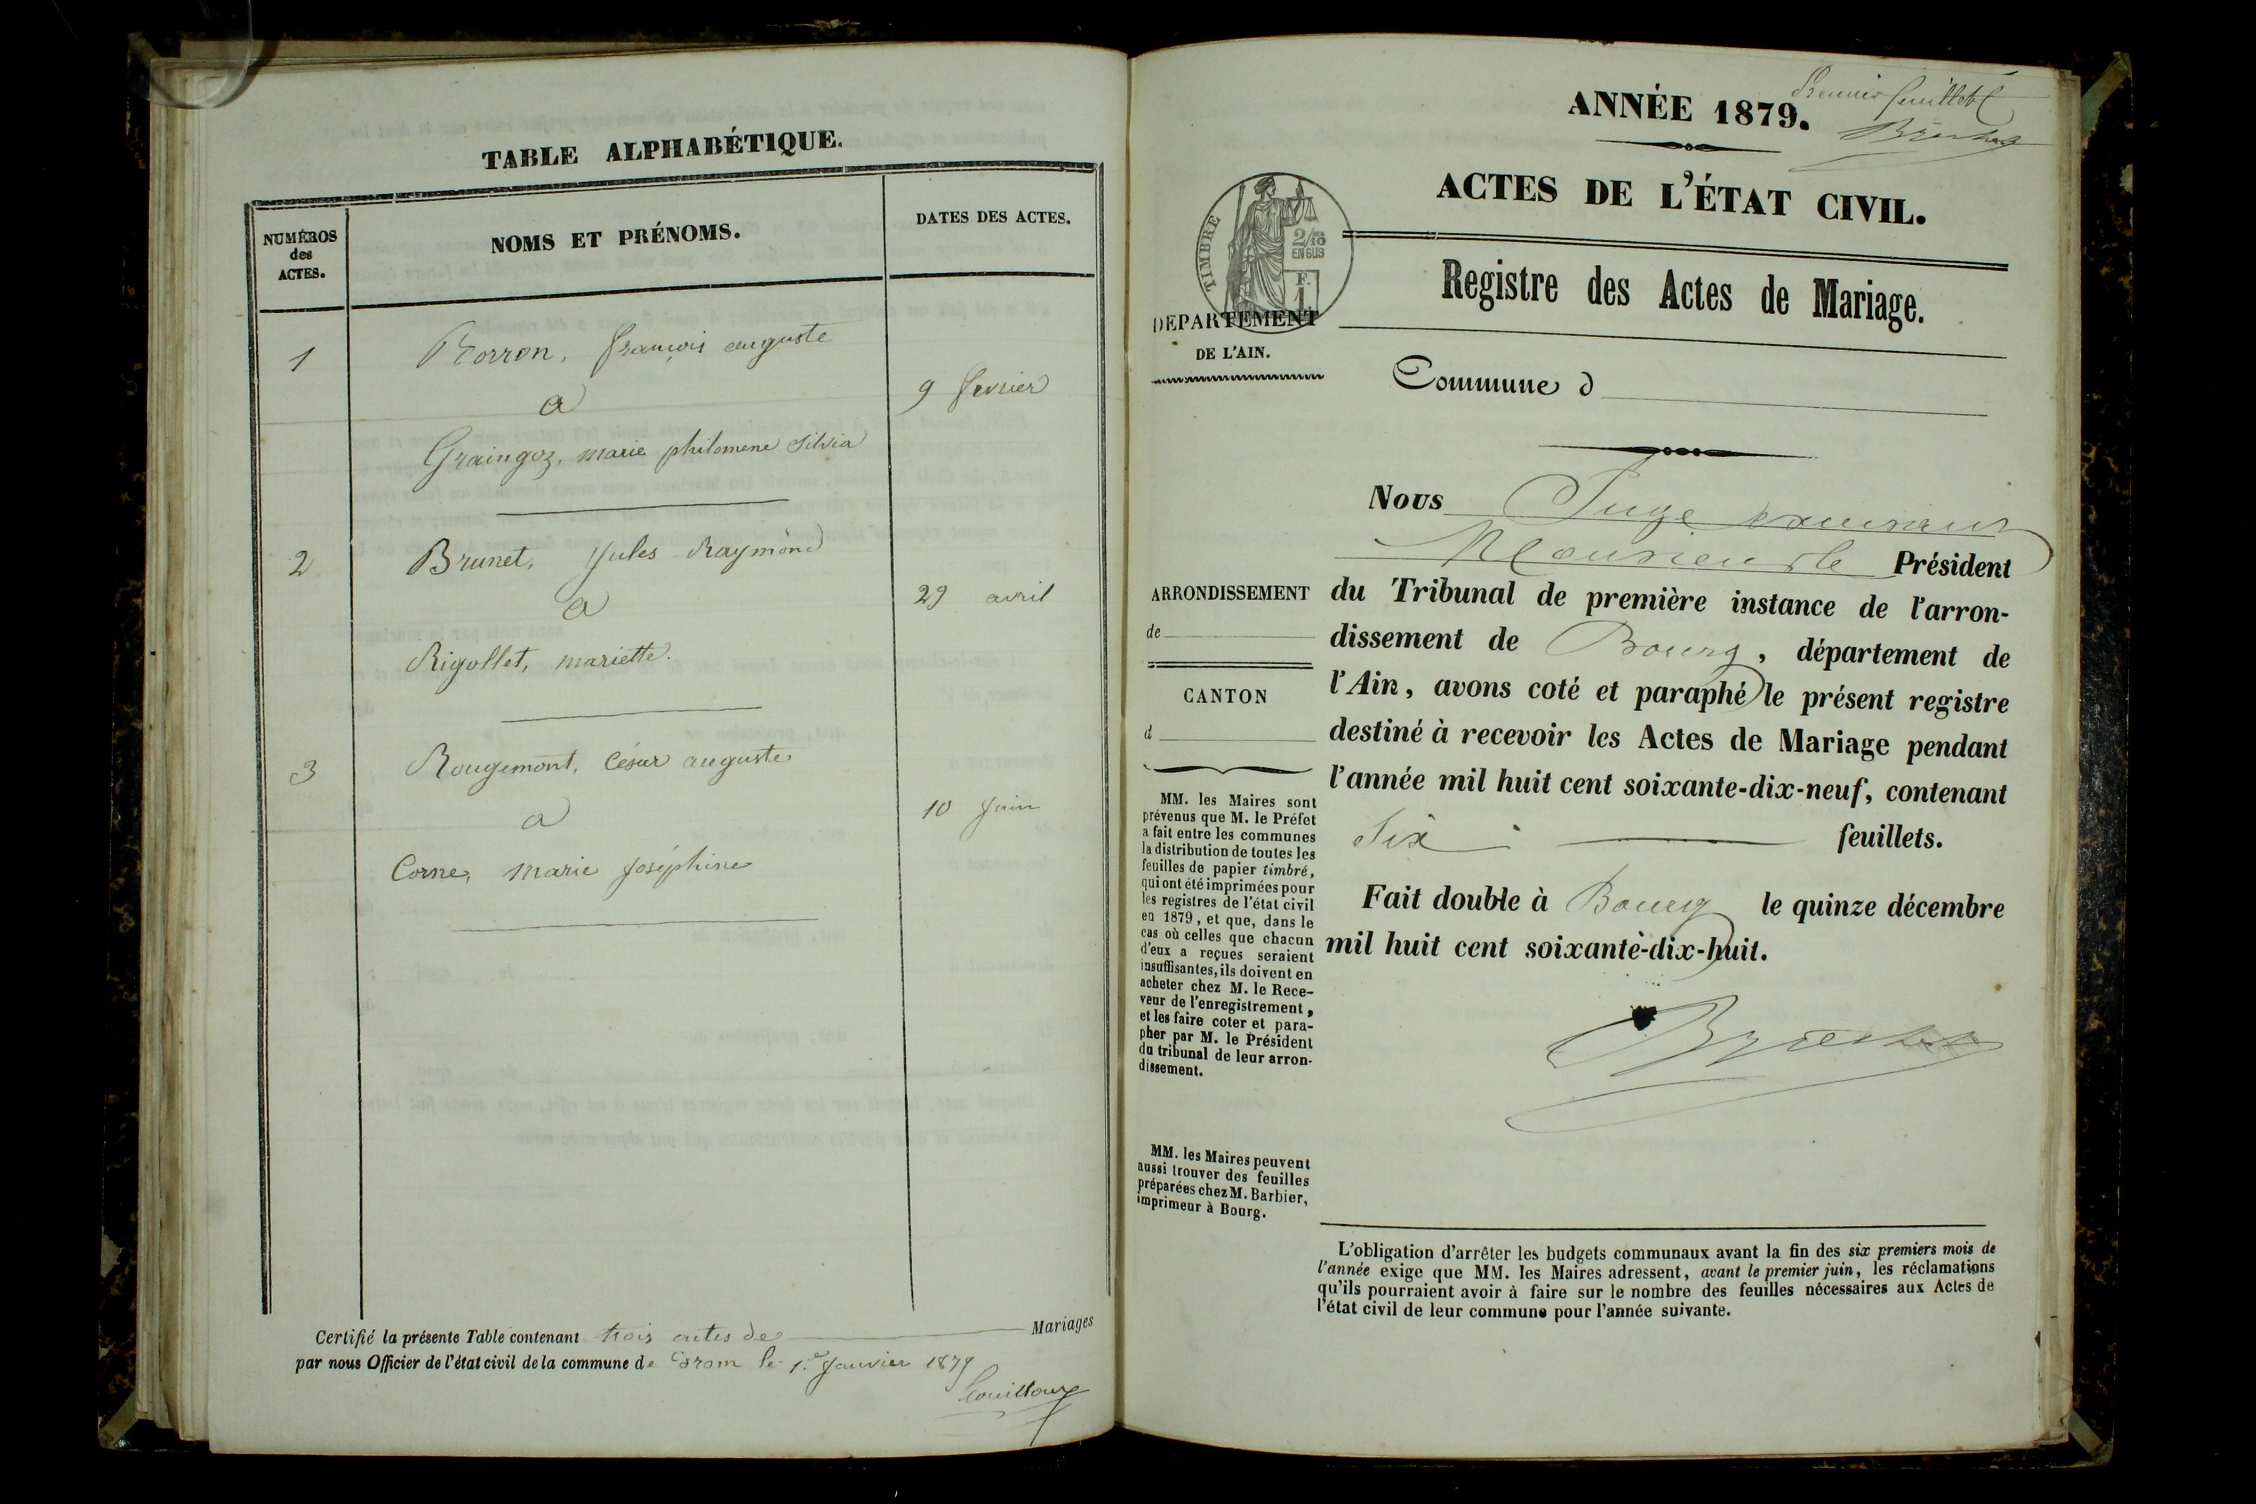 TABLE ALPHABÉTIQUE.
NUMÉROS
des
ACTES.
NOMS ET PRÉNOMS.
DATES DES ACTES.
1
Borron, françois auguste
a
9 fevrier
Graingoz, marie philomene Silvia
2
Brunet, Jules Raymond
a
29 avril
Rigollet, mariette.
3
Rougemont, César auguste
a
10 Juin
Corne, marie Joséphine
Certifié la présente Table contenant trois actes de Mariages
par nous Officier de l'état civil de la commune de Drom le 1.er Janvier 1879
ANNÉE 1879.
Premier feuillet
ACTES DE L'ÉTAT CIVIL.
TIMBRE
2/10
EN SUS
F.
1
Registre des Actes de Mariage.
DEPARTEMENT
DE L'AIN.
Commune d
Nous Juge
Monsieur le Président
ARRONDISSEMENT
de
CANTON
d
du Tribunal de première instance de l'arron-
dissement de Bourg, département de
l'Ain, avons coté et paraphé le présent registre
destiné à recevoir les Actes de Mariage pendant
l'année mil huit cent soixante-dix-neuf, contenant
Six feuillets.
Fait double à Bourg le quinze décembre
mil huit cent soixante-dix-huit.
MM. les Maires sont
prévenus que M. le Préfet
a fait entre les communes
la distribution de toutes les
feuilles de papier timbré,
qui ont été imprimées pour
les registres de l'état civil
en 1879, et que, dans le
cas où celles que chacun
d'eux a reçues seraient
insuffisantes, ils doivent en
acheter chez M. le Rece-
veur de l'enregistrement,
et les faire coter et para-
pher par M. le Président
du tribunal de leur arron-
dissement.
MM. les Maires peuvent
aussi trouver des feuilles
préparées chez M. Barbier,
imprimeur à Bourg.
L'obligation d'arrêter les budgets communaux avant la fin des six premiers mois de
l'année exige que MM. les Maires adressent, avant le premier juin, les réclamations
qu'ils pourraient avoir à faire sur le nombre des feuilles nécessaires aux Actes de
l'état civil de leur commune pour l'année suivante.